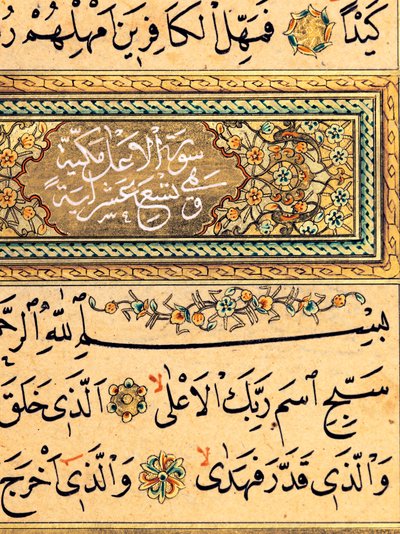 كَيْدًا فَمَهِّلِ الْكَافِرِينَ أَمْهِلْهُمْ
سورة الاعلى مكية
وهي تسع عشر اية
بِسْمِ اللّٰهِ
سَبِّحِ اسْمَ رَبِّكَ الْاَعْلٰى لا اَلَّذِى خَلَقَ
وَالَّذِى قَدَّرَ فَهَدٰى لا وَالَّذِى اَخْرَجَ